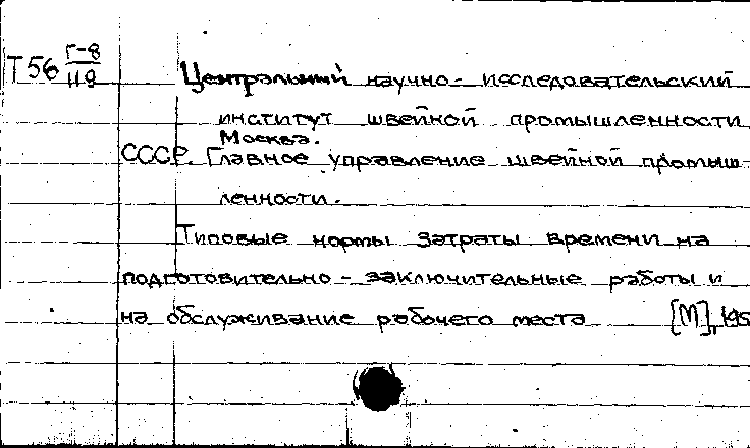 Т56 Г-8
118
Центральный научно-исследовательский
институт швейной промышленности
Москва.
СССР. Главное управление швейной промыш-
ленности.
Типовые нормы затраты времени на
подготовительно-заключительные работы и
на обслуживание рабочего места [М],